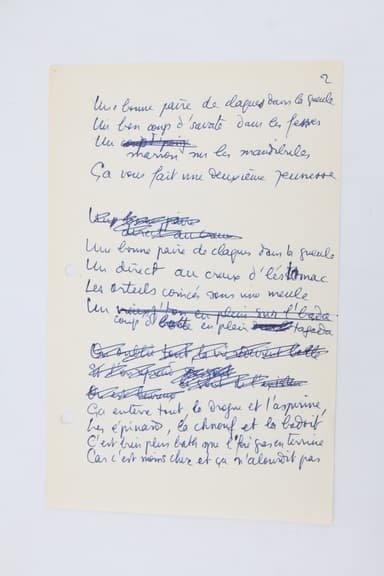 2
Une bonne paire de claques dans la gueule
Un bon coup d'savate dans les fesses
Un coup d'poing
marron sur les mandibules
Ça vous fait une deuxième jeunesse
direct au creux
Une bonne paire de claques dans la gueule
Un direct au creux d'l'estomac
Les orteils coincés sous une meule
Un en plein sur l'bada
coup d'latte en plein tagada
Ça enterre tout, la drogue et l'aspirine
Les épinards, la chnouf et la badoit
C'est bien plus bath que l'foie gras en terrine
Car c'est moins cher et ça n'alourdit pas